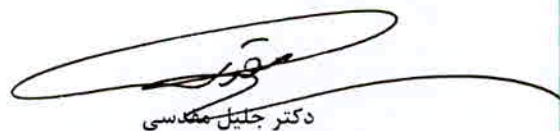 دکتر جلیل مقدسی